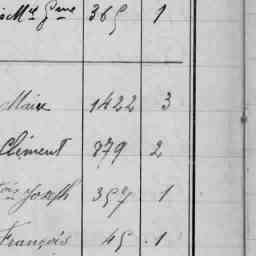 Mie Gme 365 1
Maire 1422 3
Clément 879 2
Fois Joseph 357 1
François 45 1